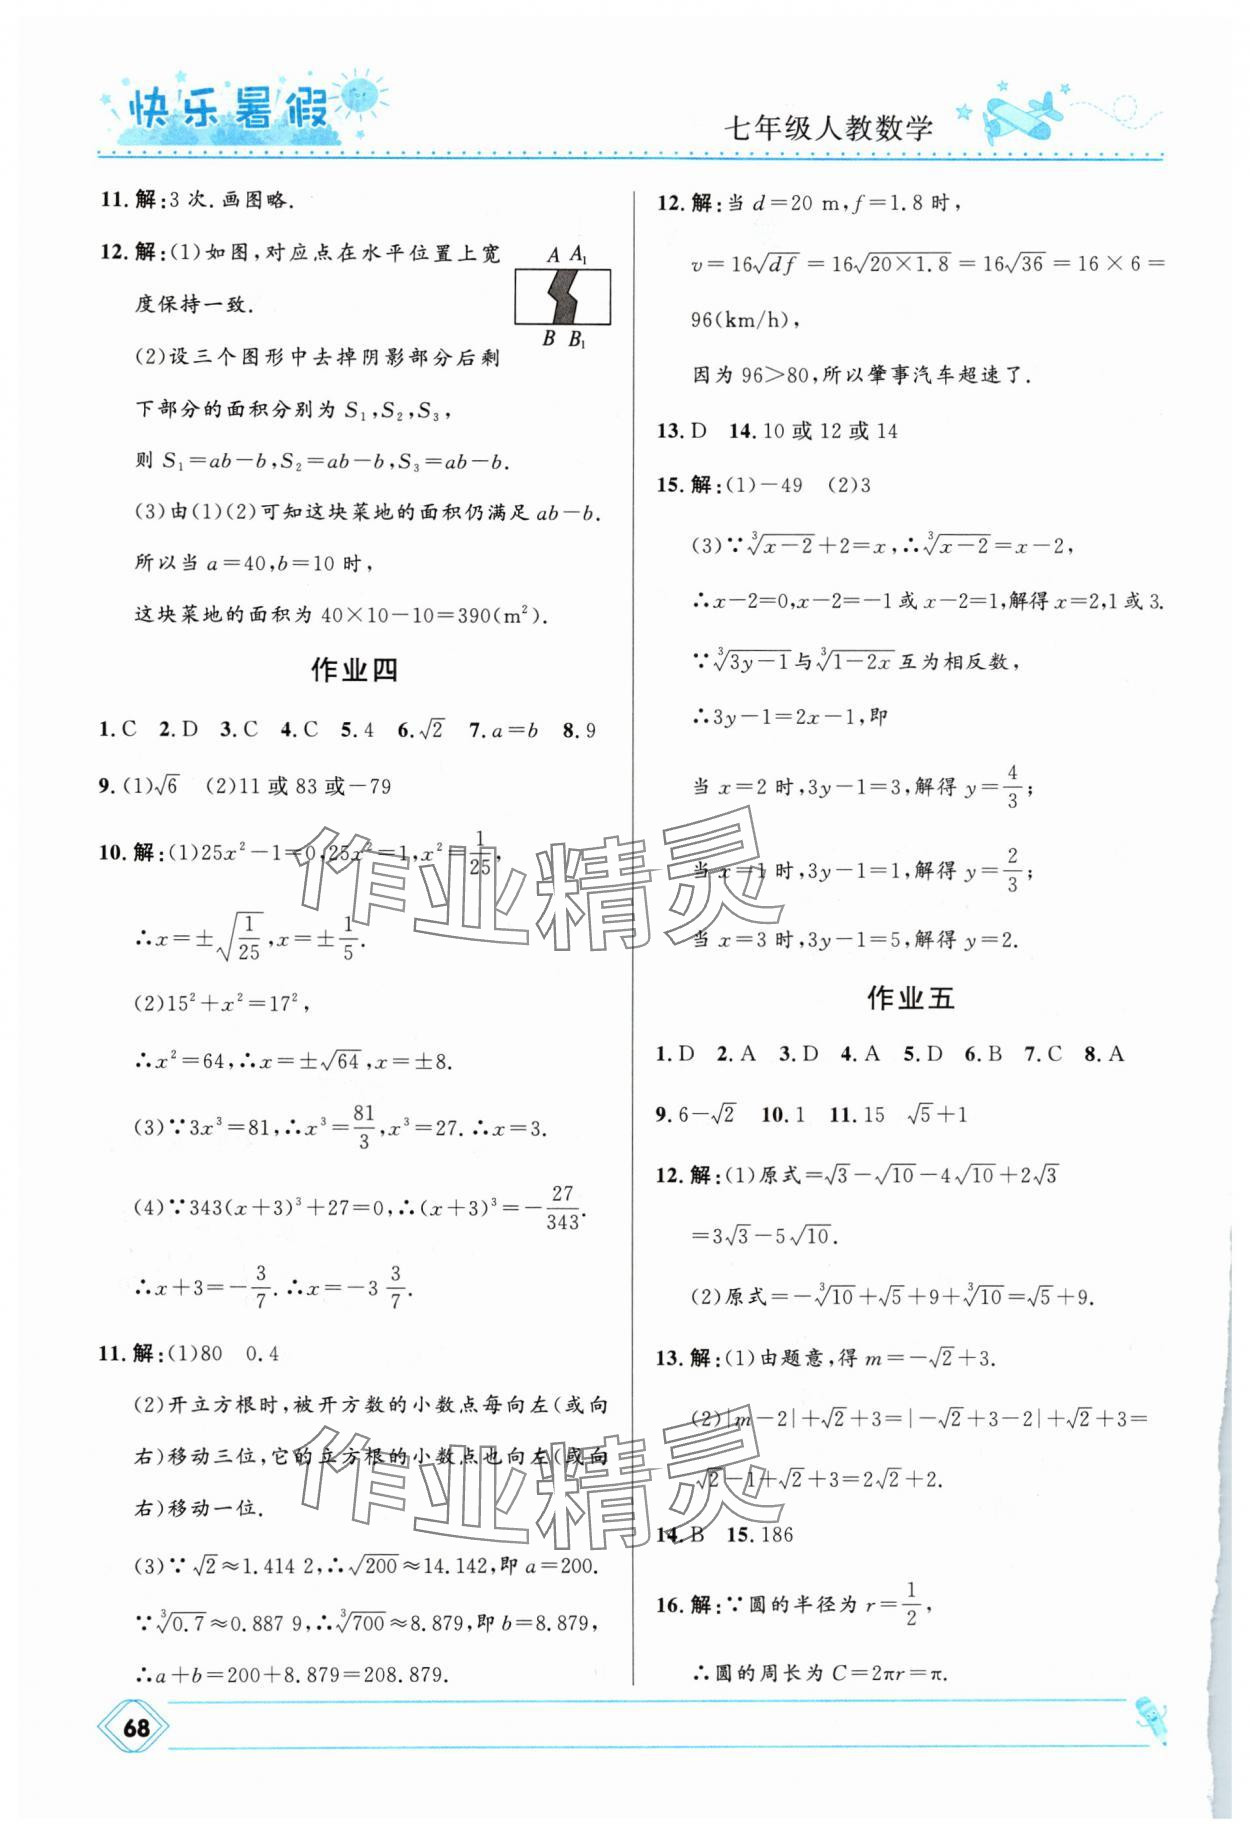 快乐暑假
七年级人教数学
11.解:3次.画图略.
12.解:(1)如图,对应点在水平位置上宽
度保持一致.
A A₁
B B₁
(2)设三个图形中去掉阴影部分后剩
下部分的面积分别为 S₁,S₂,S₃,
则 S₁=ab-b,S₂=ab-b,S₃=ab-b.
(3)由(1)(2)可知这块菜地的面积仍满足 ab-b.
所以当 a=40,b=10 时,
这块菜地的面积为 40×10-10=390(m²).
作业四
1.C 2.D 3.C 4.C 5.4 6.√2 7.a=b 8.9
9.(1)√6 (2)11或83或-79
10.解:(1)25x²-1=0,25x²=1,x²=1/25,
∴x=±√(1/25),x=±1/5.
(2)15²+x²=17²,
∴x²=64,∴x=±√64,x=±8.
(3)∵3x³=81,∴x³=81/3,x³=27.∴x=3.
(4)∵343(x+3)³+27=0,∴(x+3)³=-27/343.
∴x+3=-3/7.∴x=-3 3/7.
11.解:(1)80 0.4
(2)开立方根时,被开方数的小数点每向左(或向
右)移动三位,它的立方根的小数点也向左(或向
右)移动一位.
(3)∵√2≈1.414 2,∴√200≈14.142,即 a=200.
∵³√0.7≈0.887 9,∴³√700≈8.879,即 b=8.879,
∴a+b=200+8.879=208.879.
12.解:当 d=20 m,f=1.8 时,
v=16√df=16√20×1.8=16√36=16×6=
96(km/h),
因为 96>80,所以肇事汽车超速了.
13.D 14.10或12或14
15.解:(1)-49 (2)3
(3)∵³√x-2+2=x,∴³√x-2=x-2,
∴x-2=0,x-2=-1或x-2=1,解得x=2,1或3.
∵³√3y-1与³√1-2x互为相反数,
∴3y-1=2x-1,即
当 x=2 时,3y-1=3,解得 y=4/3;
当 x=1 时,3y-1=1,解得 y=2/3;
当 x=3 时,3y-1=5,解得 y=2.
作业五
1.D 2.A 3.D 4.A 5.D 6.B 7.C 8.A
9.6-√2 10.1 11.15 √5+1
12.解:(1)原式=√3-√10-4√10+2√3
=3√3-5√10.
(2)原式=-³√10+√5+9+³√10=√5+9.
13.解:(1)由题意,得 m=-√2+3.
(2)|m-2|+√2+3=|-√2+3-2|+√2+3=
√2-1+√2+3=2√2+2.
14.B 15.186
16.解:∵圆的半径为 r=1/2,
∴圆的周长为 C=2πr=π.
68
作业精灵
作业精灵